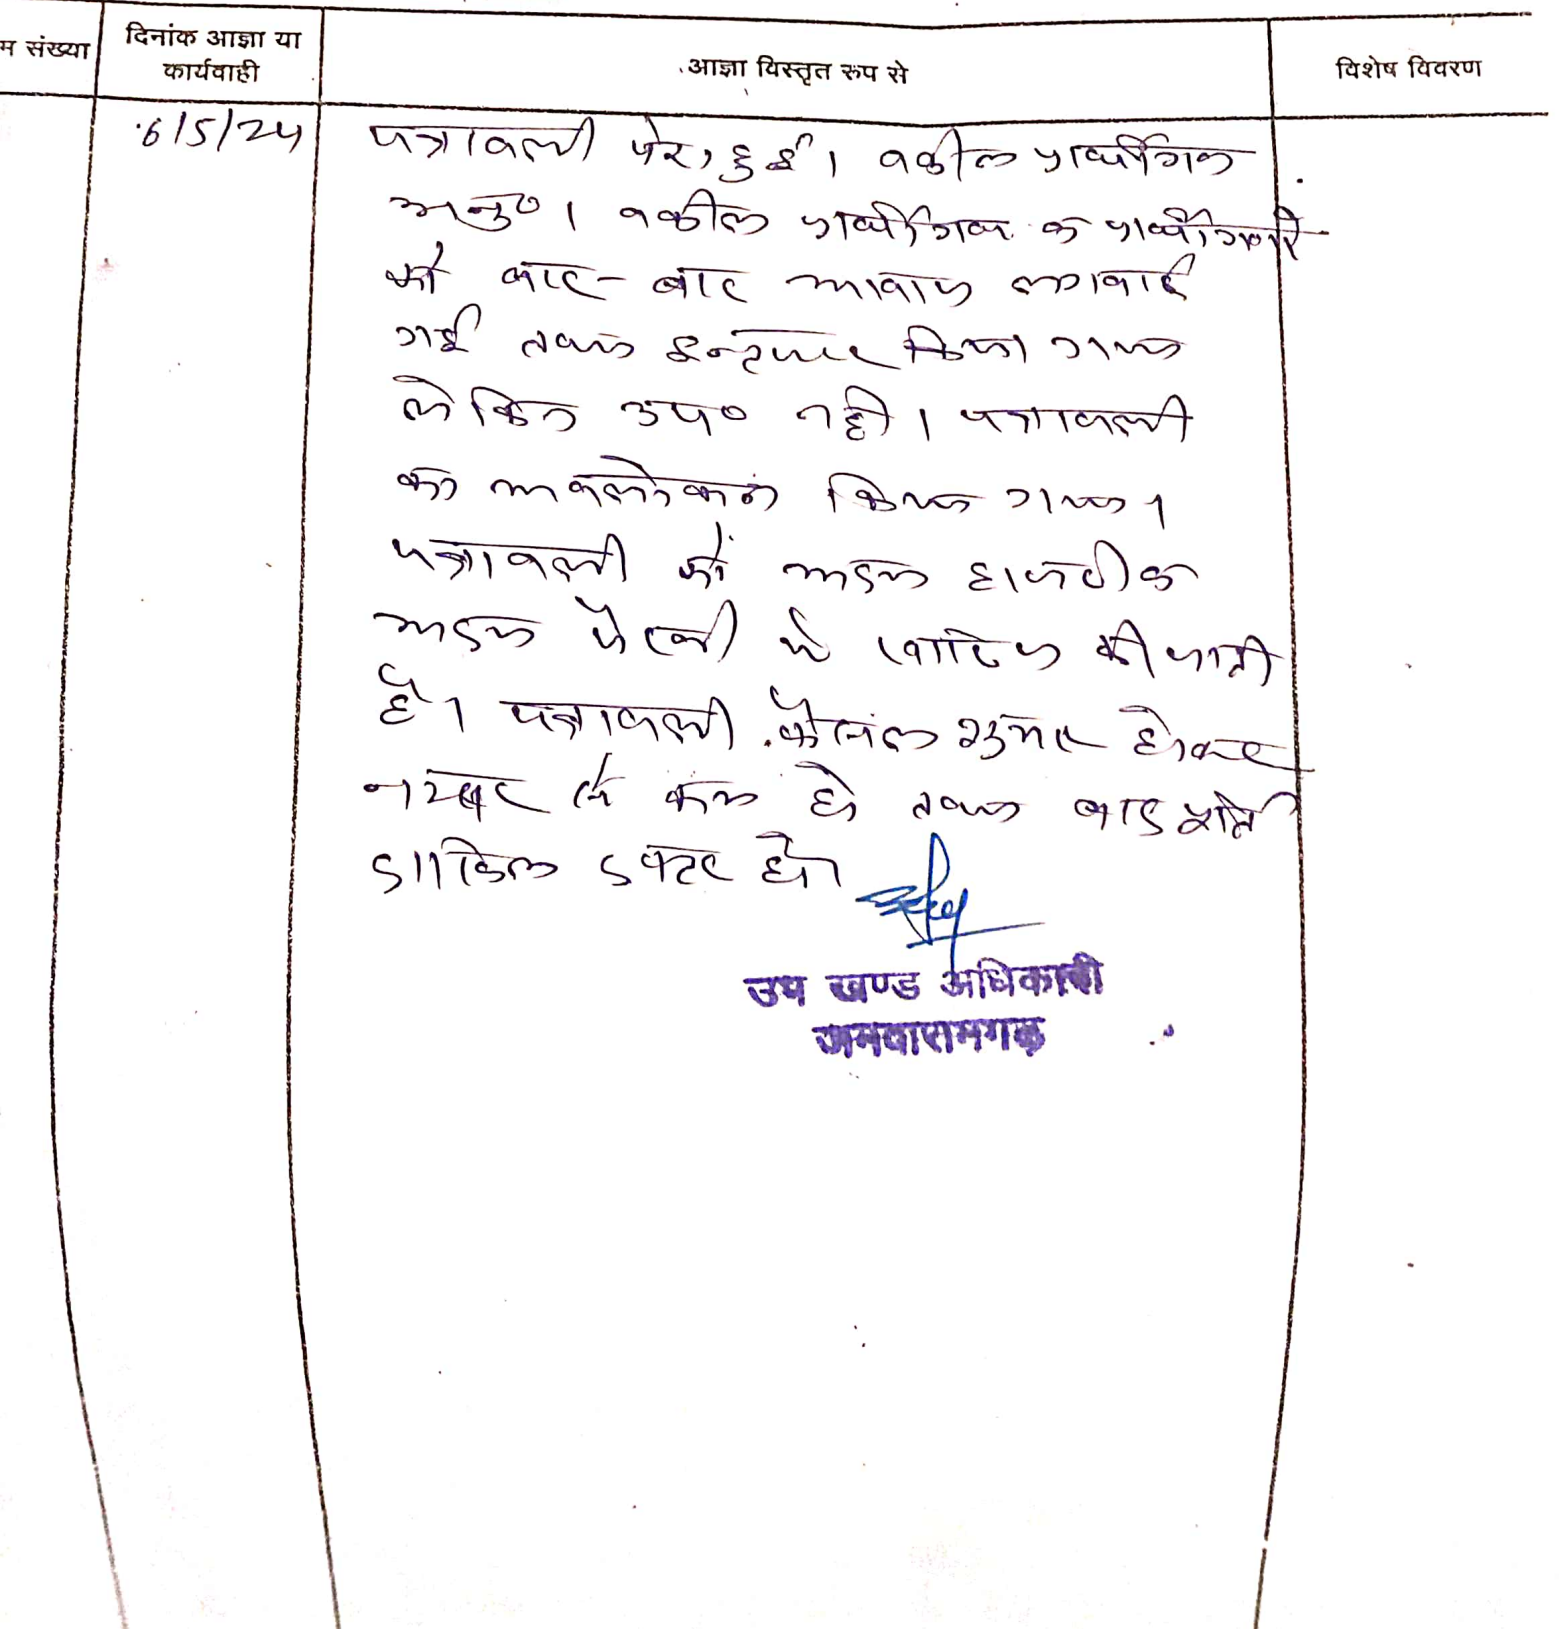 म संख्या
दिनांक आज्ञा या
कार्यवाही
आज्ञा विस्तृत रूप से
विशेष विवरण
6/5/24
पत्रावली पेश हुई। वकील प्रार्थीगण
अनु०। वकील प्रार्थीगण व प्रार्थीगण
को बार-बार आवाज लगवाई
गई तथा इन्तजार किया गया
लेकिन उप० नही। पत्रावली
का अवलोकन किया गया।
पत्रावली को अदम हाजरी व
अदम पैरवी में खारिज की जाती
है। पत्रावली फैसल शुमार होकर
नम्बर से कम हो तथा बाद
दाखिल दफ्तर हो।
उप खण्ड अधिकारी
जमवारामगढ़